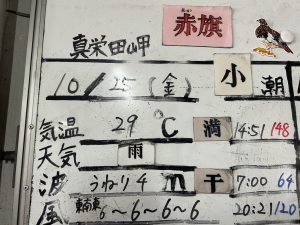 赤旗
真栄田岬
10/25(金) 小潮
気温 29℃ 満 14:51 148
天気 雨
波 うねり4m 干 7:00 64
風 東南東 6~6~6~6 20:21/120